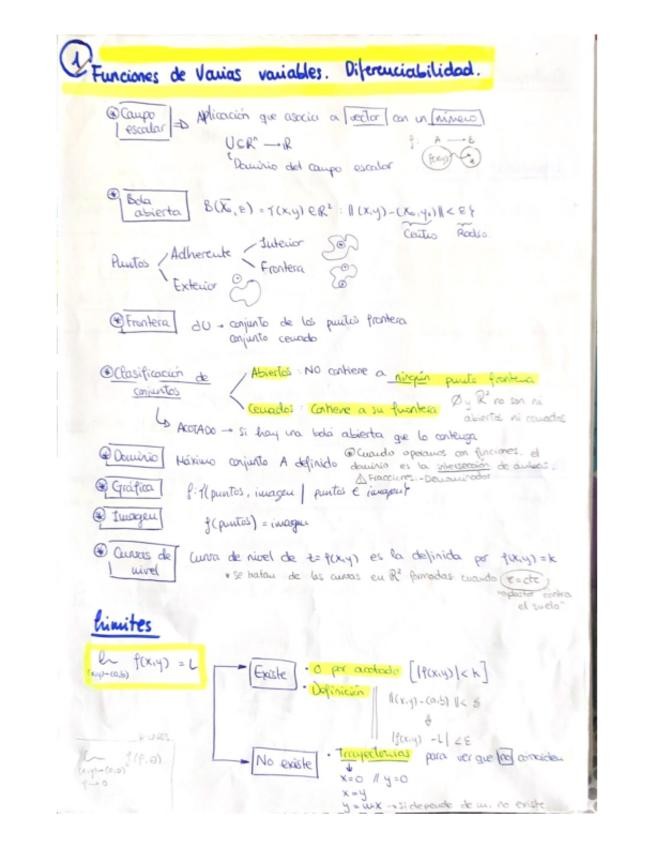 1 Funciones de Varias variables. Diferenciabilidad.
* Campo escalar ⇒ Aplicación que asocia a vector con un número
U⊂Rⁿ → R
f: A → B
f(x,y)
Dominio del campo escalar
* Bola abierta B(X̄₀, ε) = {(x,y) ∈ R² : ||(x,y)-(x₀,y₀)|| < ε}
Centro Radio
Puntos Adherente Interior
Frontera
Exterior
* Frontera ∂U → conjunto de los puntos frontera
conjunto cerrado
* Clasificación de conjuntos
Abiertos: NO contiene a ningún punto frontera
Cerrados: Contiene a su frontera
∅ y R² no son ni abiertos ni cerrados
ACOTADO → si hay una bola abierta que lo contenga
* Dominio Máximo conjunto A definido
* Cuando operamos con funciones, el dominio es la intersección de ambas.
⚠ Fracciones - Denominador
* Gráfica f: {(puntos, imagen | puntos e imagen}
* Imagen f(puntos) = imagen
* Curvas de nivel Curva de nivel de z=f(x,y) es la definida por f(x,y)=k
* se tratan de las curvas en R² formadas cuando z=cte
"aplastar contra el suelo"
Límites
lim f(x,y) = L
(x,y)→(a,b)
Existe · 0 por acotado [|f(x,y)| < K]
· Definición
||(x,y)-(a,b)|| < δ
⇓
|f(x,y) - L| < ε
No existe · Trayectorias para ver que no coinciden
x=0 // y=0
x=y
y=mx → si depende de m, no existe